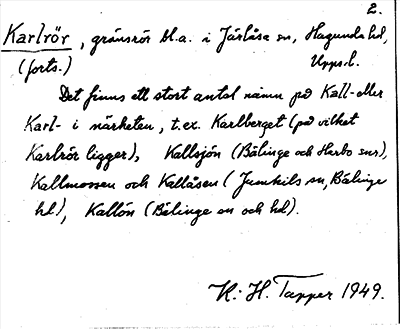 2.
Karlrör, gränsrör bl.a. i Järlåsa sn, Hagunda hd,
(forts.) Upps.l.
Det finns ett stort antal namn på Kall- eller
Karl- i närheten, t.ex. Karlberget (på vilket
Karlrör ligger), Kallsjön (Bälinge och Harbo snr),
Kallmossen och Kallåsen (Jumkils sn, Bälinge
hd), Kallön (Bälinge sn och hd).
K. H. Tapper 1949.